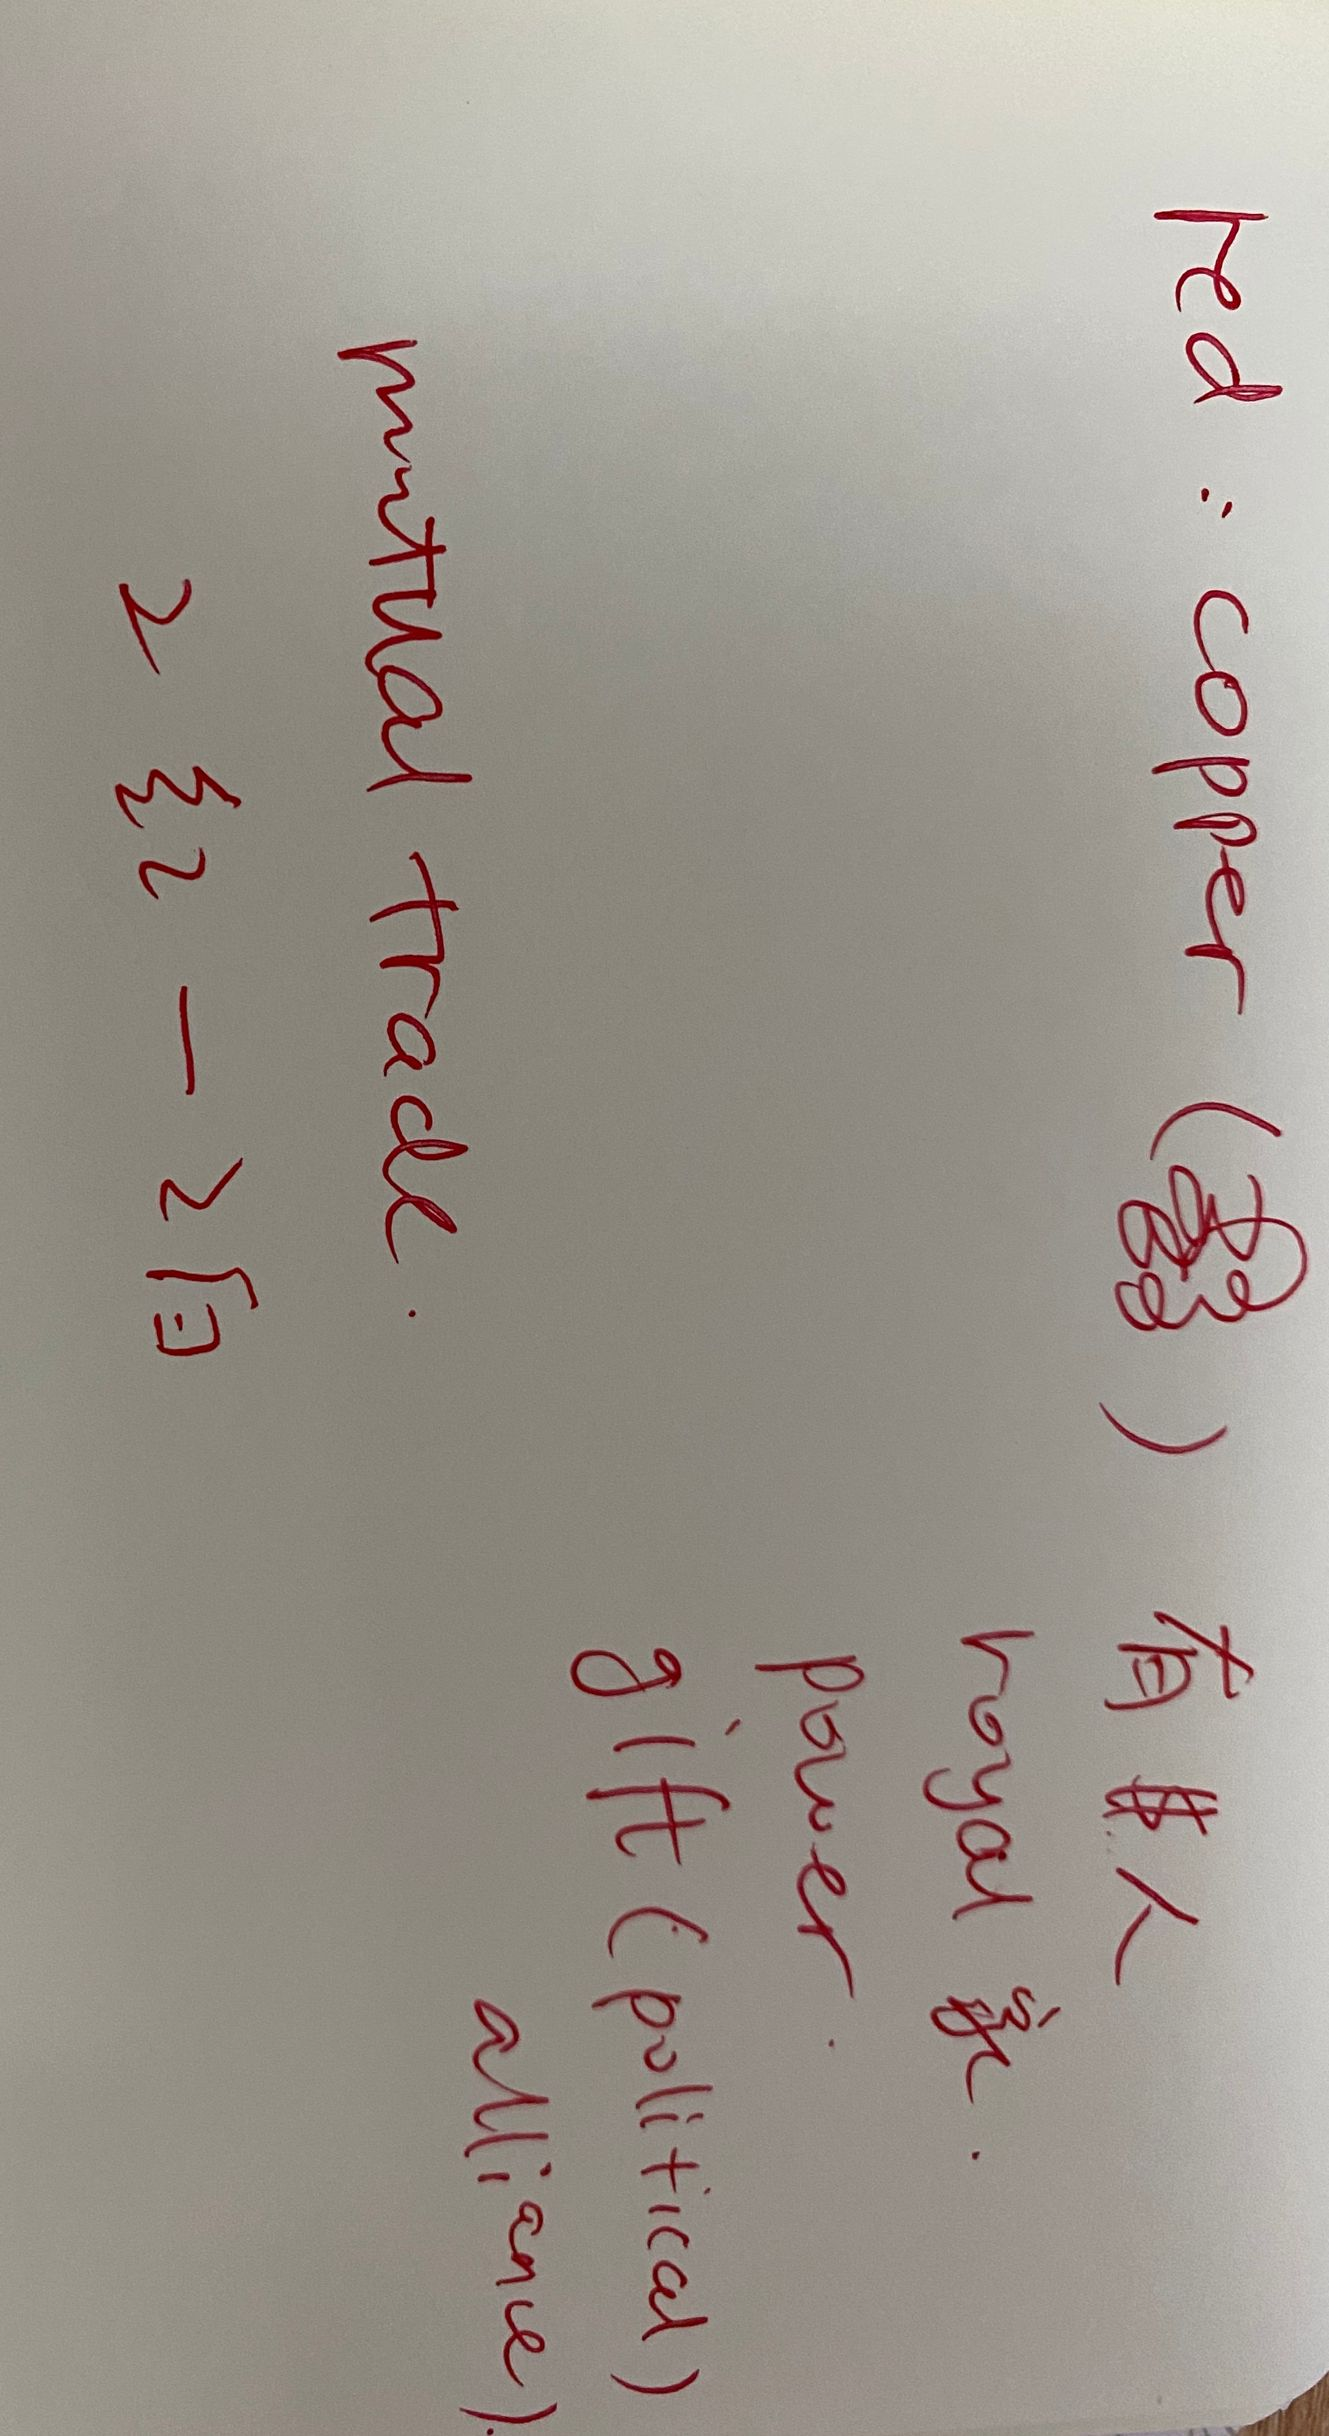 red : copper ( ) 有 人
royal
power.
gift (political
alliance).
mutual trade.